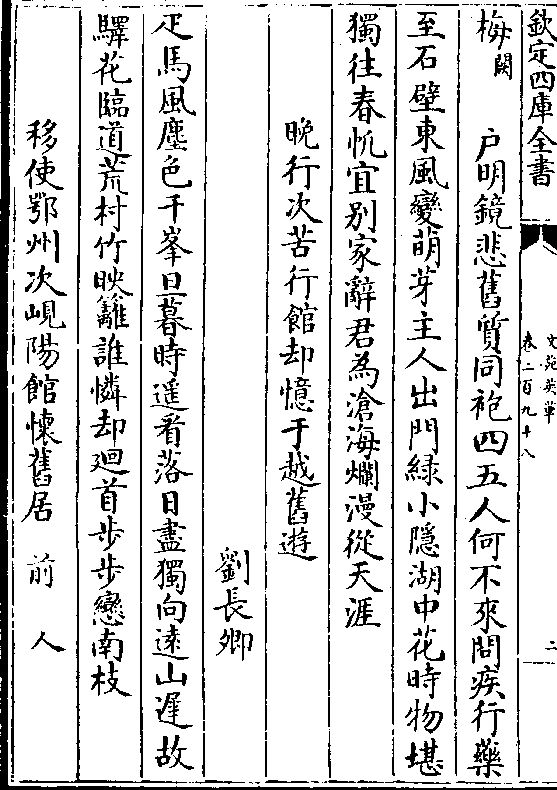 欽定四庫全書
文苑英華
卷二百九十八
二
梅闕戶明鏡悲舊質同袍四五人何不來問疾行藥
至石壁東風變萌芽主人出門緑小隱湖中花時物堪
獨往春帆宜别家辭君為滄海爛漫從天涯
晚行次苦行館却憶于越舊遊
劉長卿
疋馬風塵色千峯旦暮時遥看落日盡獨向遠山遲故
驛花臨道荒村竹映籬誰憐却廻首步步戀南枝
移使鄂州次峴陽館懷舊居 前人